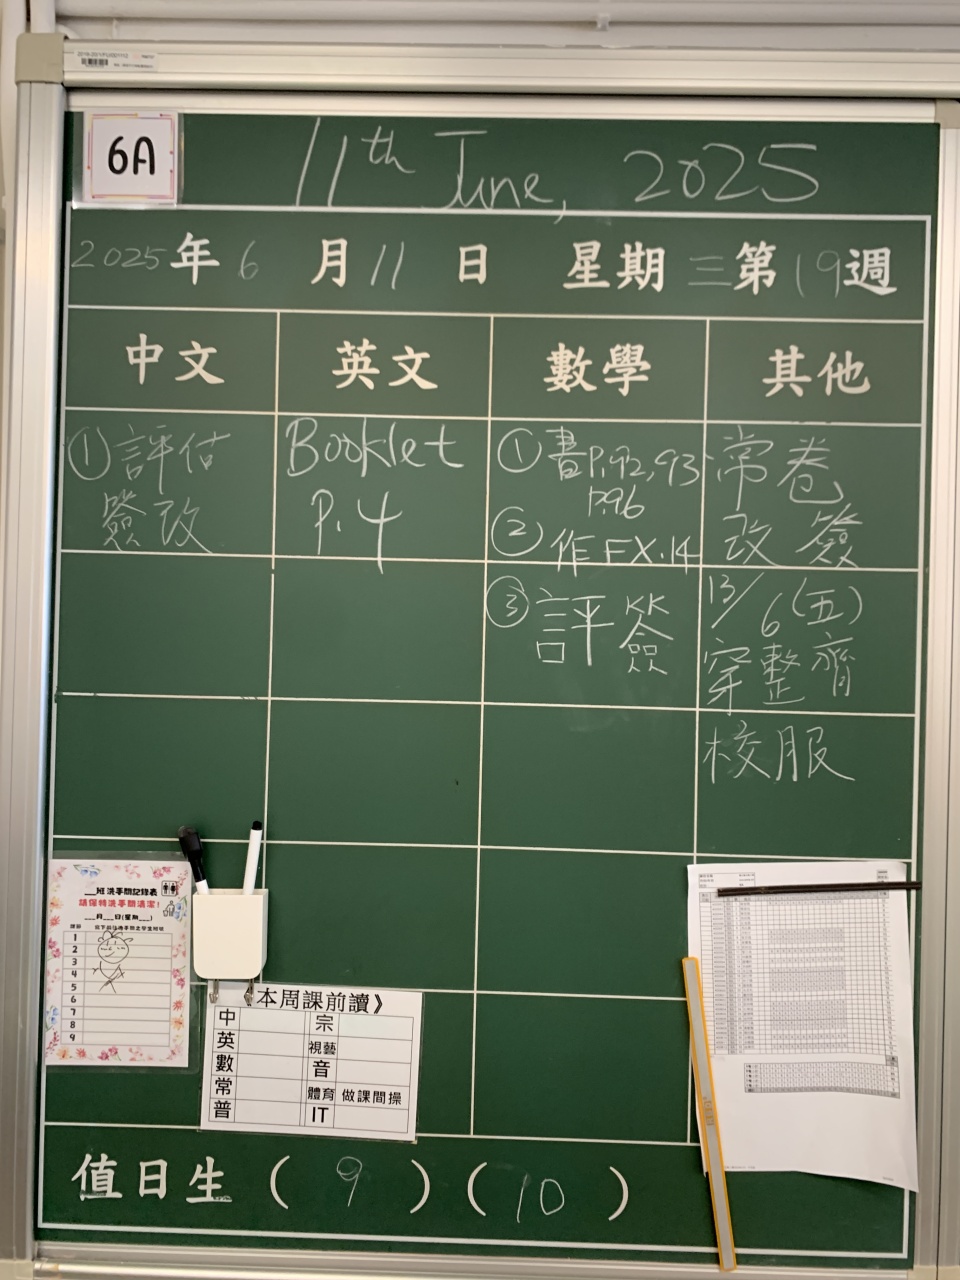 6A
11th June, 2025
2025年6月11日 星期三第19週
中文 英文 數學 其他
①評估
簽改
Booklet
P.4
①書P.92,93
P.96
②作EX.14
③評簽
常卷
改簽
13/6(五)
穿整齊
校服
__班洗手間記錄表
請保持洗手間清潔!
__月__日(星期__)
1
2
3
4
5
6
7
8
9
《本周課前讀》
中 宗
英 視藝
數 音
常 體育 做課間操
普 IT
值日生(9)(10)